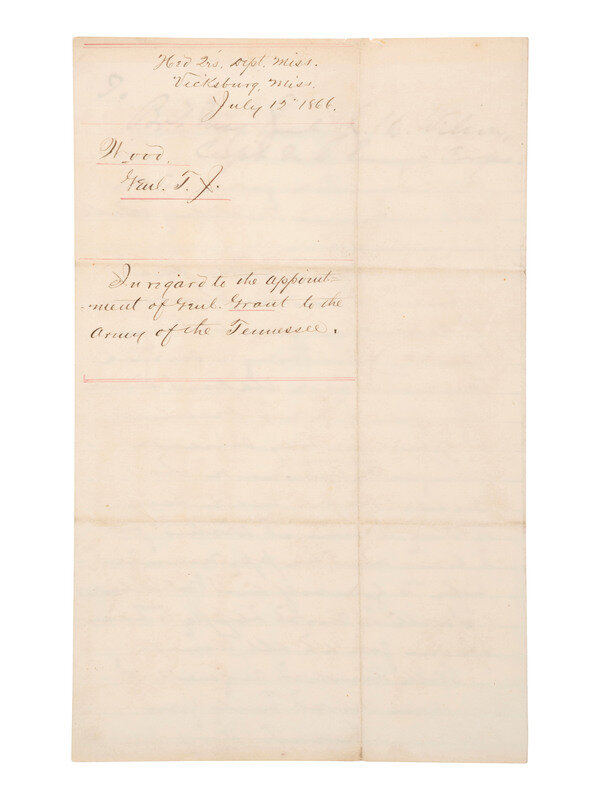 Hed Qrs, Dept. Miss.
Vicksburg, Miss.
July 12" 1866.
Wood,
Genl. T. J.
In regard to the appoint-
-ment of Genl. Grant to the
Army of the Tennessee.